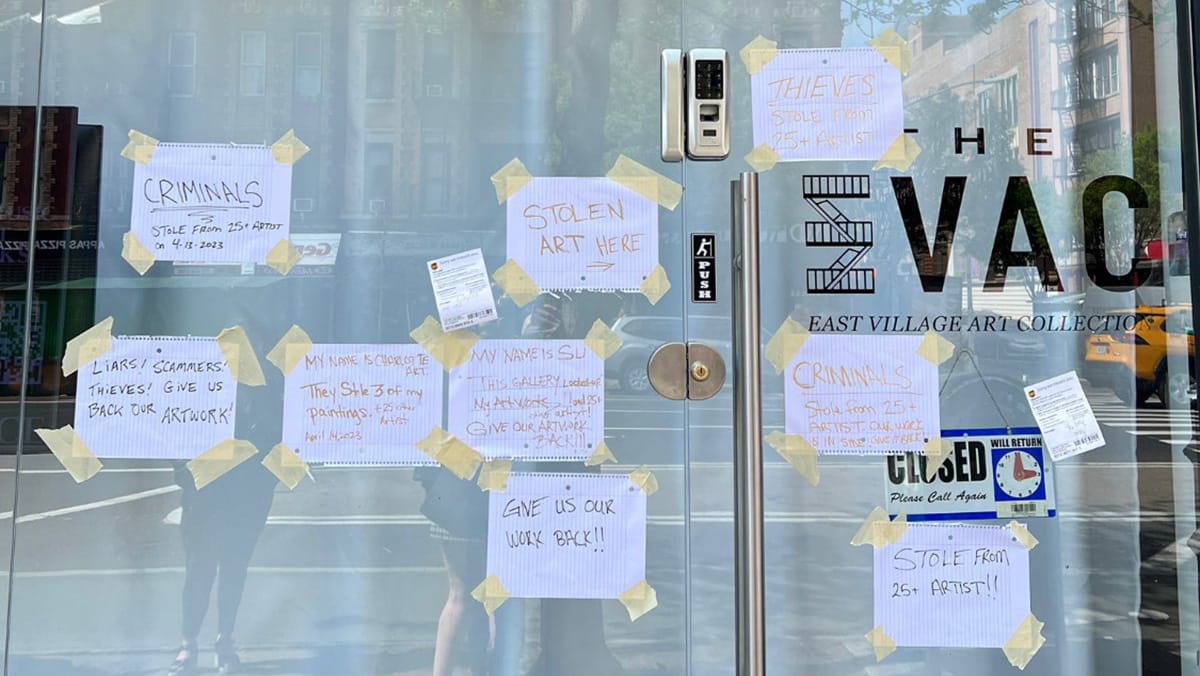 THIEVES
STOLE FROM
25+ ARTIST
CRIMINALS
STOLE FROM 25+ ARTIST
ON 4-13-2023
STOLEN
ART HERE
PUSH
THE
EVAC
EAST VILLAGE ART COLLECTION
LIARS! SCAMMERS!
THIEVES! GIVE US
BACK OUR ARTWORK!
MY NAME IS CHARLOTTE
ART.
They Stole 3 of my
paintings. + 25 other
Artist
April 14, 2023
MY NAME IS SU
THIS GALLERY Looted
My Artwork !! and 25+
other artist!
GIVE OUR ARTWORK
BACK!!!
CRIMINALS
Stole from 25+
ARTIST. OUR WORK
IS IN SIDE. GIVE BACK
CLOSED
Please Call Again
WILL RETURN
GIVE US OUR
WORK BACK!!
STOLE FROM
25+ ARTIST!!